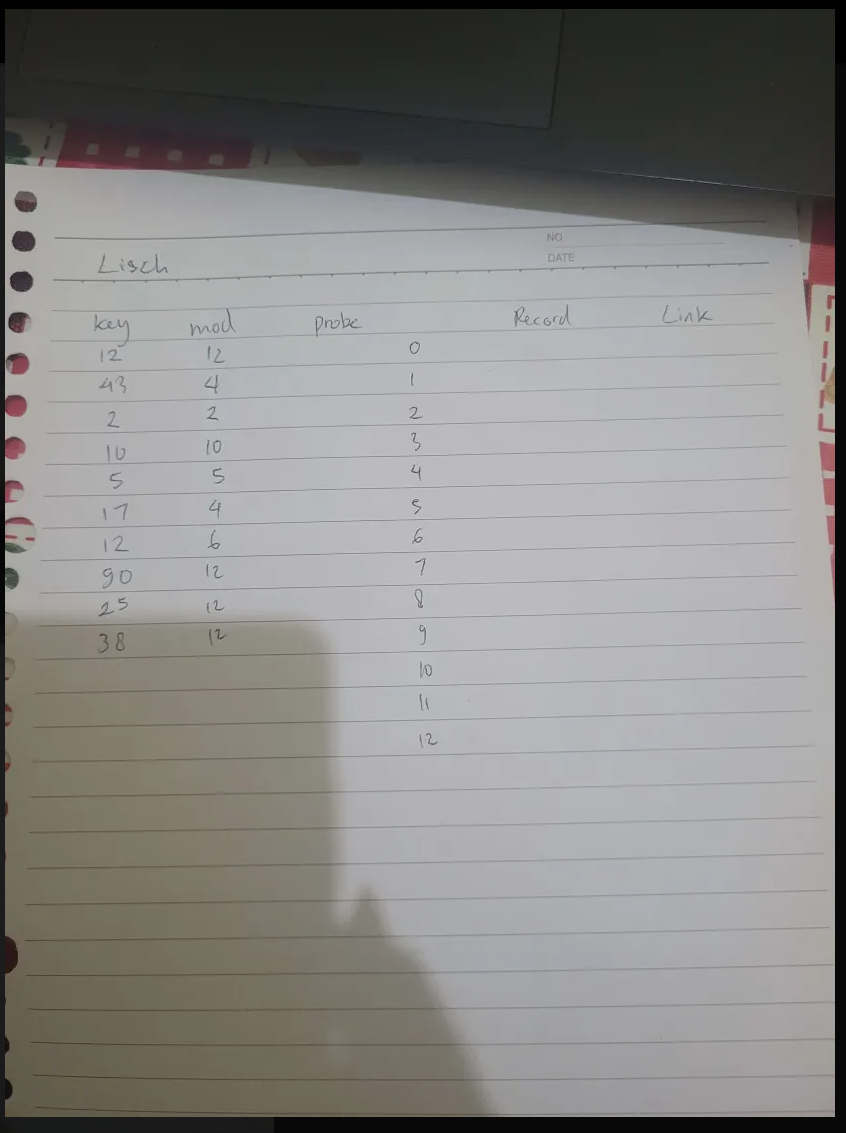 NO
Lisch
DATE
key mod Probe Record Link
12 12 0
43 4 1
2 2 2
10 10 3
5 5 4
17 4 5
12 6 6
90 12 7
25 12 8
38 12 9
10
11
12